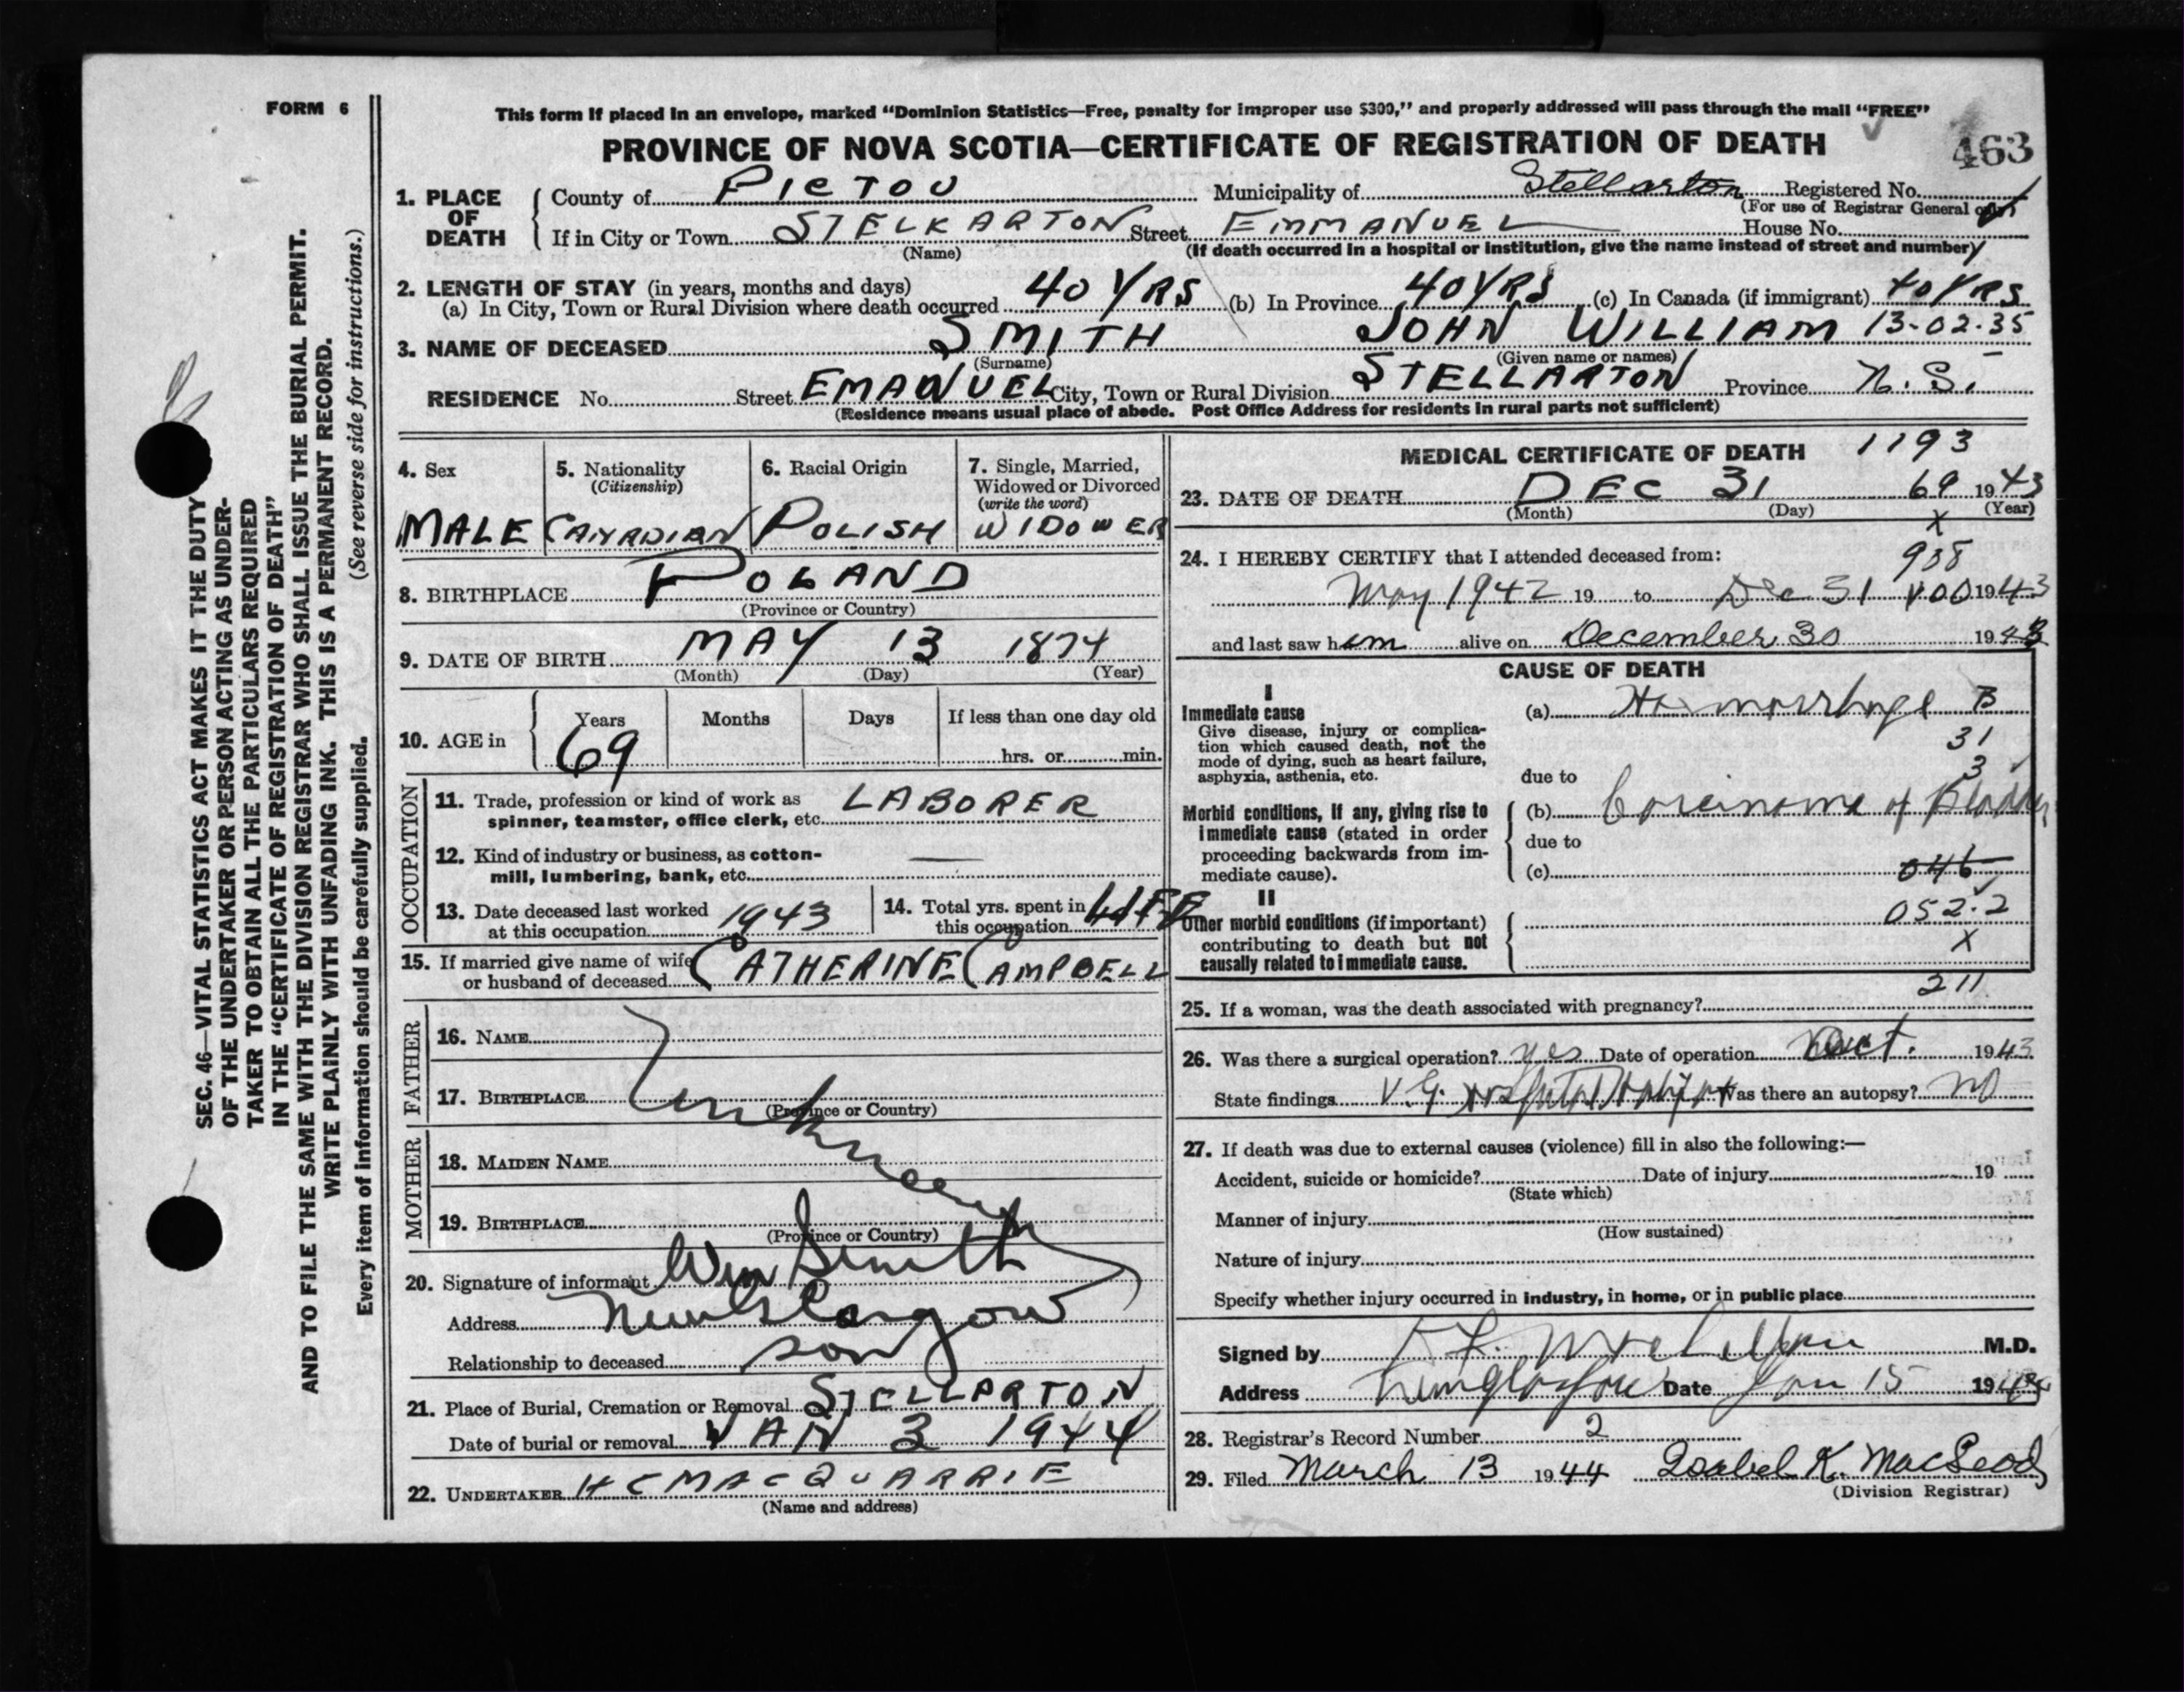 FORM 6
This form if placed in an envelope, marked "Dominion Statistics—Free, penalty for improper use $300," and properly addressed will pass through the mail "FREE"
PROVINCE OF NOVA SCOTIA—CERTIFICATE OF REGISTRATION OF DEATH
463
1. PLACE OF DEATH
County of PICTOU Municipality of Stellarton Registered No.
(For use of Registrar General only)
If in City or Town STELKARTON Street EMMANUEL House No.
(Name) (If death occurred in a hospital or institution, give the name instead of street and number)
2. LENGTH OF STAY (in years, months and days)
(a) In City, Town or Rural Division where death occurred 40 YRS (b) In Province 40 YRS (c) In Canada (if immigrant) 40 YRS
3. NAME OF DECEASED SMITH JOHN WILLIAM 13-02-35
(Surname) (Given name or names)
RESIDENCE No. Street EMANUEL City, Town or Rural Division STELLARTON Province N.S.
(Residence means usual place of abode. Post Office Address for residents in rural parts not sufficient)
4. Sex
MALE
5. Nationality
(Citizenship)
CANADIAN
6. Racial Origin
POLISH
7. Single, Married,
Widowed or Divorced
(write the word)
WIDOWER
8. BIRTHPLACE POLAND
(Province or Country)
9. DATE OF BIRTH MAY 13 1874
(Month) (Day) (Year)
10. AGE in
Years Months Days If less than one day old
69 hrs. or min.
OCCUPATION
11. Trade, profession or kind of work as
spinner, teamster, office clerk, etc. LABORER
12. Kind of industry or business, as cotton-
mill, lumbering, bank, etc. —
13. Date deceased last worked
at this occupation 1943
14. Total yrs. spent in
this occupation LIFE
15. If married give name of wife
or husband of deceased CATHERINE CAMPBELL
FATHER
16. NAME
17. BIRTHPLACE
(Province or Country)
Unknown
MOTHER
18. MAIDEN NAME
19. BIRTHPLACE
(Province or Country)
20. Signature of informant Wm Smith
Address New Glasgow
Relationship to deceased son
21. Place of Burial, Cremation or Removal STELLARTON
Date of burial or removal JAN 3 1944
22. UNDERTAKER H C MACQUARRIE
(Name and address)
MEDICAL CERTIFICATE OF DEATH 1193
23. DATE OF DEATH DEC 31 69 1943
(Month) (Day) (Year)
X
24. I HEREBY CERTIFY that I attended deceased from:
938
May 1942 19 to Dec 31 V00 1943
and last saw him alive on December 30 1943
CAUSE OF DEATH
I
Immediate cause
Give disease, injury or complica-
tion which caused death, not the
mode of dying, such as heart failure,
asphyxia, asthenia, etc.
(a) Haemorrhage B
31
3
due to
Morbid conditions, if any, giving rise to
immediate cause (stated in order
proceeding backwards from im-
mediate cause).
(b) Carcinoma of Bladder
due to
(c) 046
II
Other morbid conditions (if important)
contributing to death but not
causally related to immediate cause.
052.2
X
211
25. If a woman, was the death associated with pregnancy?
26. Was there a surgical operation? yes Date of operation Oct. 1943
State findings V.G. Hospital Halifax Was there an autopsy? no
27. If death was due to external causes (violence) fill in also the following:—
Accident, suicide or homicide? Date of injury 19
(State which)
Manner of injury
(How sustained)
Nature of injury
Specify whether injury occurred in industry, in home, or in public place
Signed by M.D.
Address New Glasgow Date Jan 15 1944
28. Registrar's Record Number 2
29. Filed March 13 1944 Isabel K. MacLeod
(Division Registrar)
SEC. 46—VITAL STATISTICS ACT MAKES IT THE DUTY
OF THE UNDERTAKER OR PERSON ACTING AS UNDER-
TAKER TO OBTAIN ALL THE PARTICULARS REQUIRED
IN THE "CERTIFICATE OF REGISTRATION OF DEATH"
AND TO FILE THE SAME WITH THE DIVISION REGISTRAR WHO SHALL ISSUE THE BURIAL PERMIT.
WRITE PLAINLY WITH UNFADING INK. THIS IS A PERMANENT RECORD.
Every item of information should be carefully supplied. (See reverse side for instructions.)